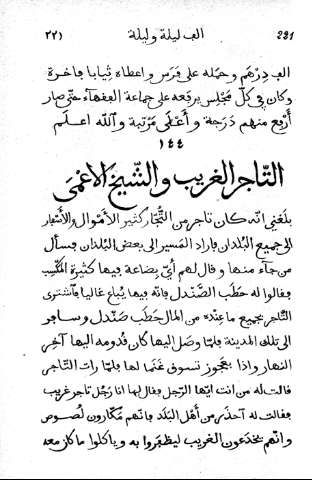 ٢٢١ الف ليلة وليلة 221
الف درهم وحمله على فرس واعطاه ثيابا فاخرة
وكان في كلّ مجلس يرفعه على جماعة الفقهاء حتّى صار
أرفع منهم درجة وأعلى مرتبة والله اعلم
١٤٤
التّاجر الغريب والشّيخ الاعمى
بلغني انّه كان تاجر من التّجّار كثير الأموال والأسفار
الى جميع البلدان فاراد المسير الى بعض البلدان فسأل
من جآء منها وقال لهم أيّ بضاعة فيها كثيرة المكسب
فقالوا له حطب الصّندل فانّه فيها يُباع غاليا فاشترى
التّاجر بجميع ما عنده من المال حطب صندل وسافر
الى تلك المدينة فلمّا وصل اليها كان قدومه اليها آخر
النهار واذا بعجوز تسوق غنما لها فلمّا رات التّاجر
قالت له من انت ايّها الرّجل فقال لها انا رجل تاجر غريب
فقالت له أحذر من أهل البلد فانّهم مكّارون لصوص
وانّهم يخدعون الغريب ليظفروا به وياكلوا ما كان معه